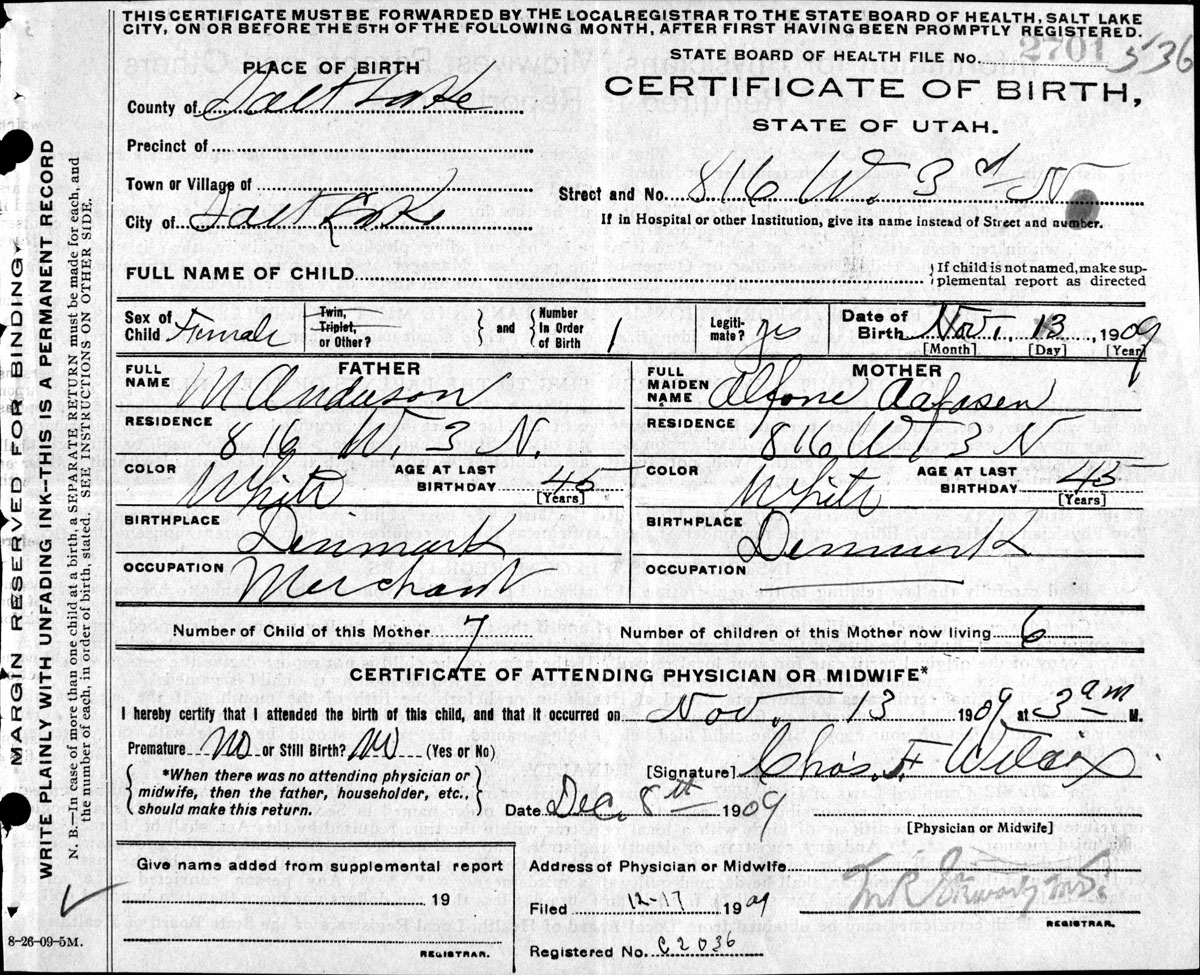 THIS CERTIFICATE MUST BE FORWARDED BY THE LOCAL REGISTRAR TO THE STATE BOARD OF HEALTH, SALT LAKE
CITY, ON OR BEFORE THE 5TH OF THE FOLLOWING MONTH, AFTER FIRST HAVING BEEN PROMPTLY REGISTERED.
STATE BOARD OF HEALTH FILE No. 2701 536
PLACE OF BIRTH
CERTIFICATE OF BIRTH,
STATE OF UTAH.
County of Salt Lake
Precinct of
Town or Village of
Street and No. 816 W. 3rd N
City of Salt Lake
If in Hospital or other Institution, give its name instead of Street and number.
FULL NAME OF CHILD
If child is not named, make sup-
plemental report as directed
Sex of Child Female
Twin, Triplet, or Other?
and
Number In Order of Birth 1
Legiti-mate? yes
Date of Birth Nov. 13 1909
[Month] [Day] [Year]
FATHER
MOTHER
FULL NAME M Anderson
FULL MAIDEN NAME
RESIDENCE 816 W. 3 N.
RESIDENCE 816 W 3 N
COLOR White
AGE AT LAST BIRTHDAY 45 [Years]
COLOR White
AGE AT LAST BIRTHDAY 45 [Years]
BIRTHPLACE Denmark
BIRTHPLACE Denmark
OCCUPATION Merchant
OCCUPATION
Number of Child of this Mother 7
Number of children of this Mother now living 6
CERTIFICATE OF ATTENDING PHYSICIAN OR MIDWIFE*
I hereby certify that I attended the birth of this child, and that it occurred on Nov. 13 1909 at 3 am M.
Premature No or Still Birth? No (Yes or No)
*When there was no attending physician or
midwife, then the father, householder, etc.,
should make this return.
[Signature] Chas. F Wilcox
Date Dec. 8th 1909
[Physician or Midwife]
Give name added from supplemental report
19
REGISTRAR.
Address of Physician or Midwife
Filed 12-17 1909
REGISTRAR.
Registered No. C2036
MARGIN RESERVED FOR BINDING
WRITE PLAINLY WITH UNFADING INK--THIS IS A PERMANENT RECORD
N. B.—In case of more than one child at a birth, a SEPARATE RETURN must be made for each, and
the number of each, in order of birth, stated. SEE INSTRUCTIONS ON OTHER SIDE.
8-26-09-5M.